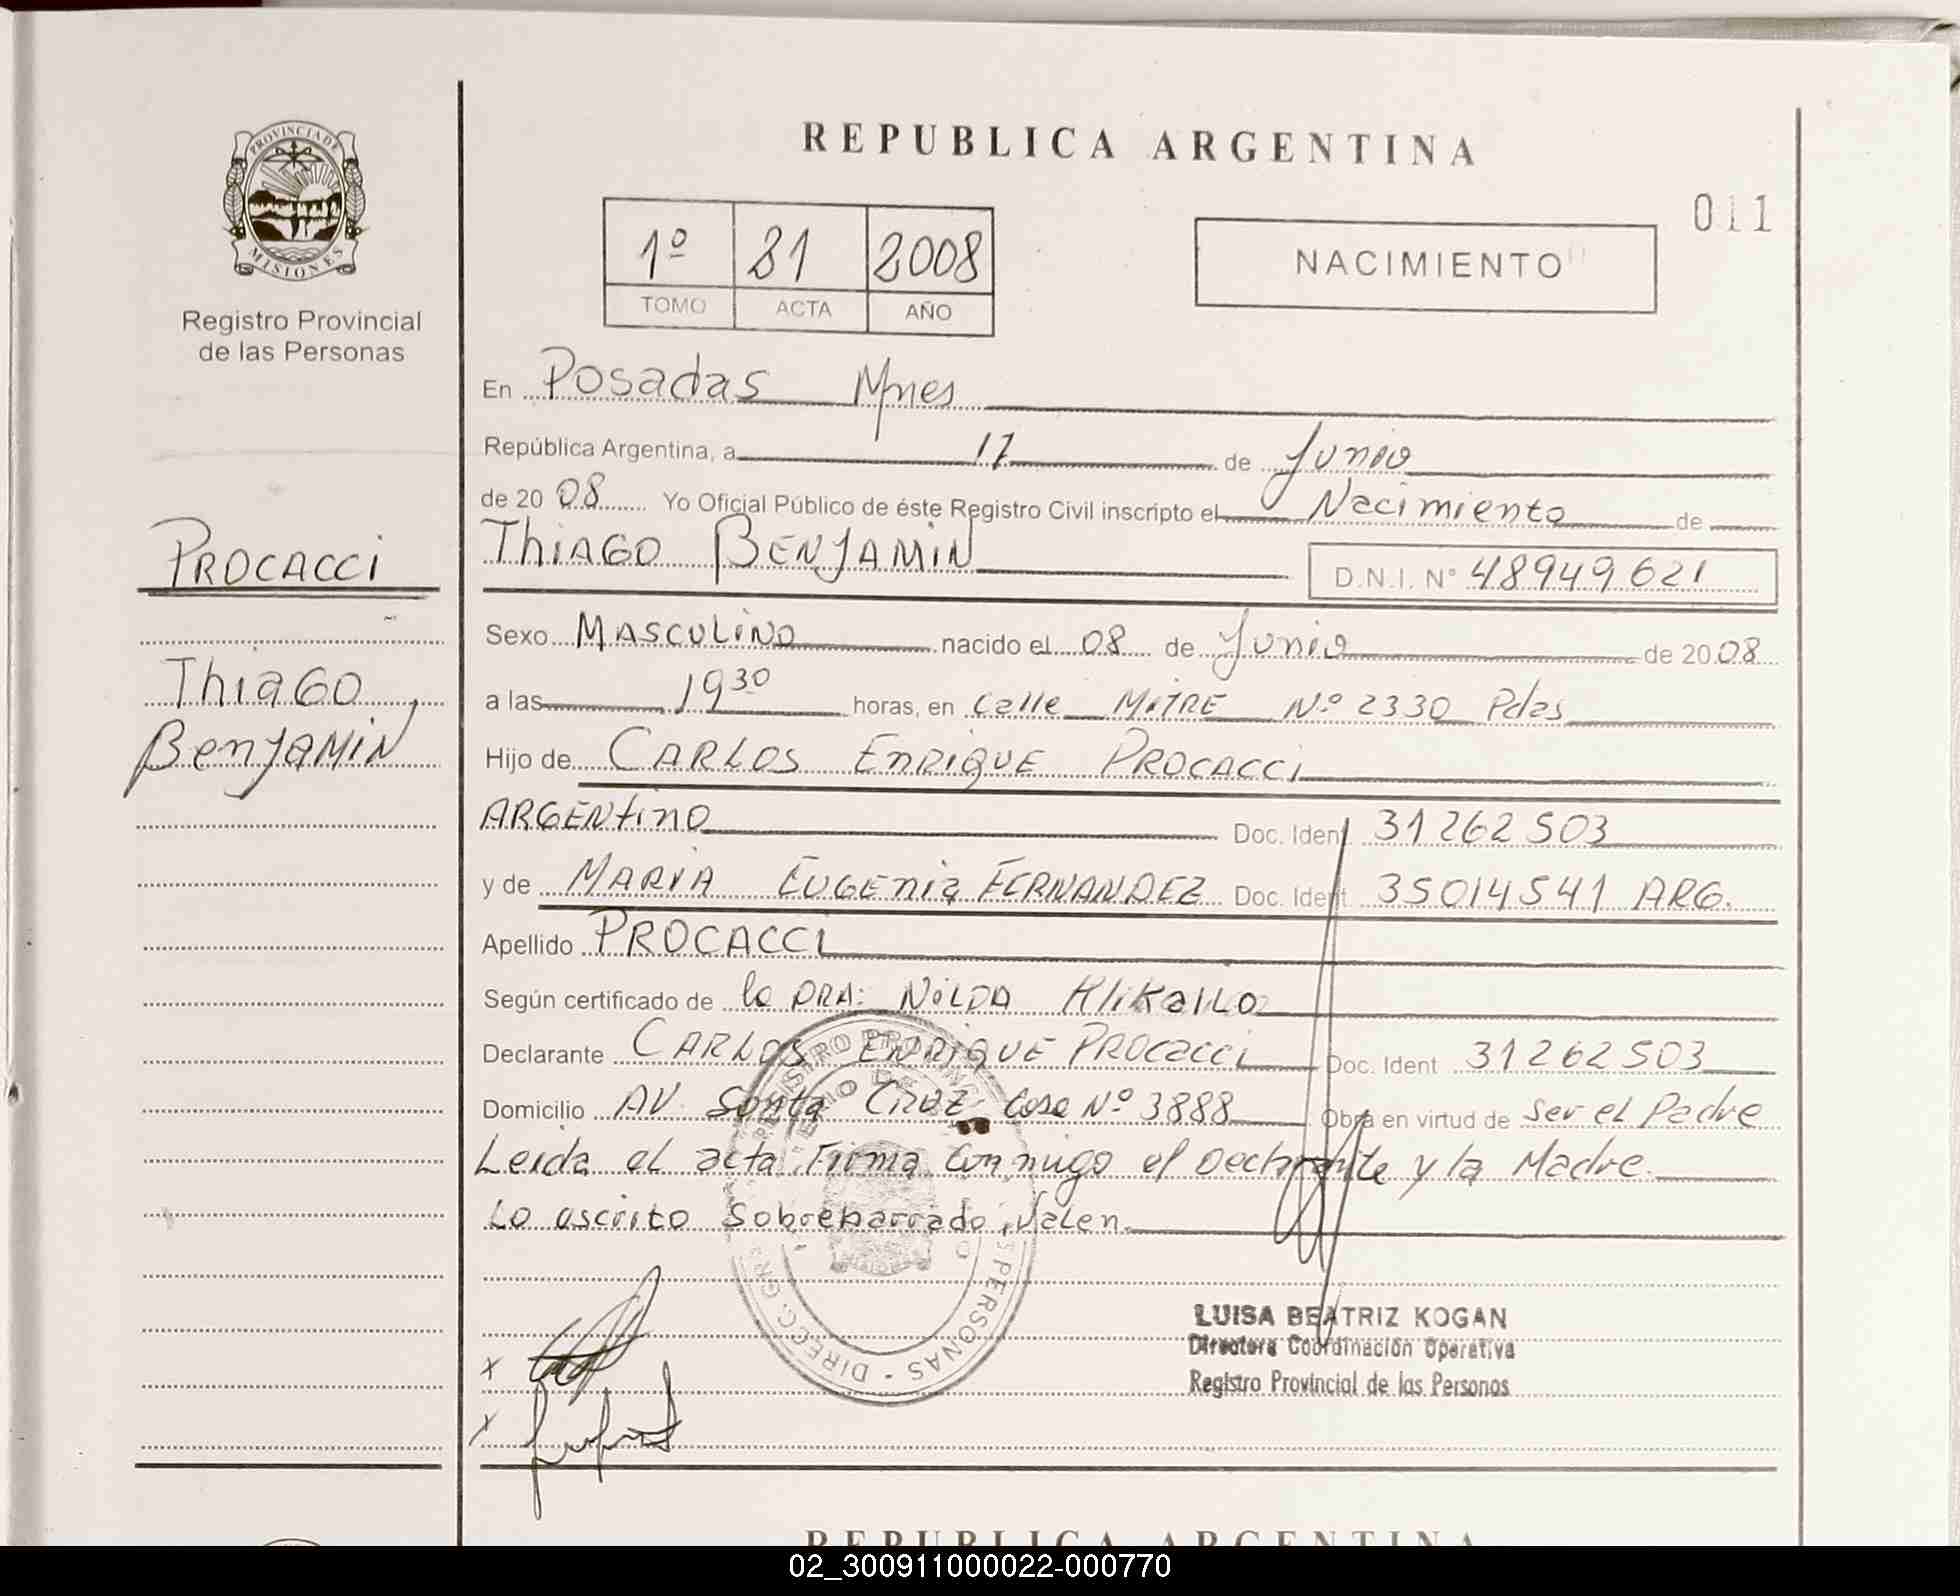 PROVINCIA DE
MISIONES
Registro Provincial
de las Personas
PROCACCI
Thiago
Benjamin
REPUBLICA ARGENTINA
011
1º 81 2008
TOMO ACTA AÑO
NACIMIENTO
En Posadas Mnes
República Argentina, a 17 de Junio
de 20 08 Yo Oficial Público de éste Registro Civil inscripto el Nacimiento de
THIAGO BENJAMIN D.N.I. Nº 48949621
Sexo MASCULINO nacido el 08 de Junio de 20 08
a las 19 30 horas, en Calle MITRE Nº 2330 Pdas
Hijo de CARLOS ENRIQUE PROCACCI
ARGENTINO Doc. Ident 31262503
y de MARIA EUGENIA FERNANDEZ Doc. Ident 35014541 ARG.
Apellido PROCACCI
Según certificado de la DRA: NILDA
Declarante CARLOS ENRIQUE PROCACCI Doc. Ident 31262503
Domicilio AV. Santa Cruz Casa Nº 3888 Obra en virtud de ser el Padre
Leida el acta Firma Conmigo el Declarante y la Madre.
Lo escrito Sobreborrado, Valen.
LUISA BEATRIZ KOGAN
Directora Coordinación Operativa
Registro Provincial de las Personas
REPUBLICA ARGENTINA
02_300911000022-000770